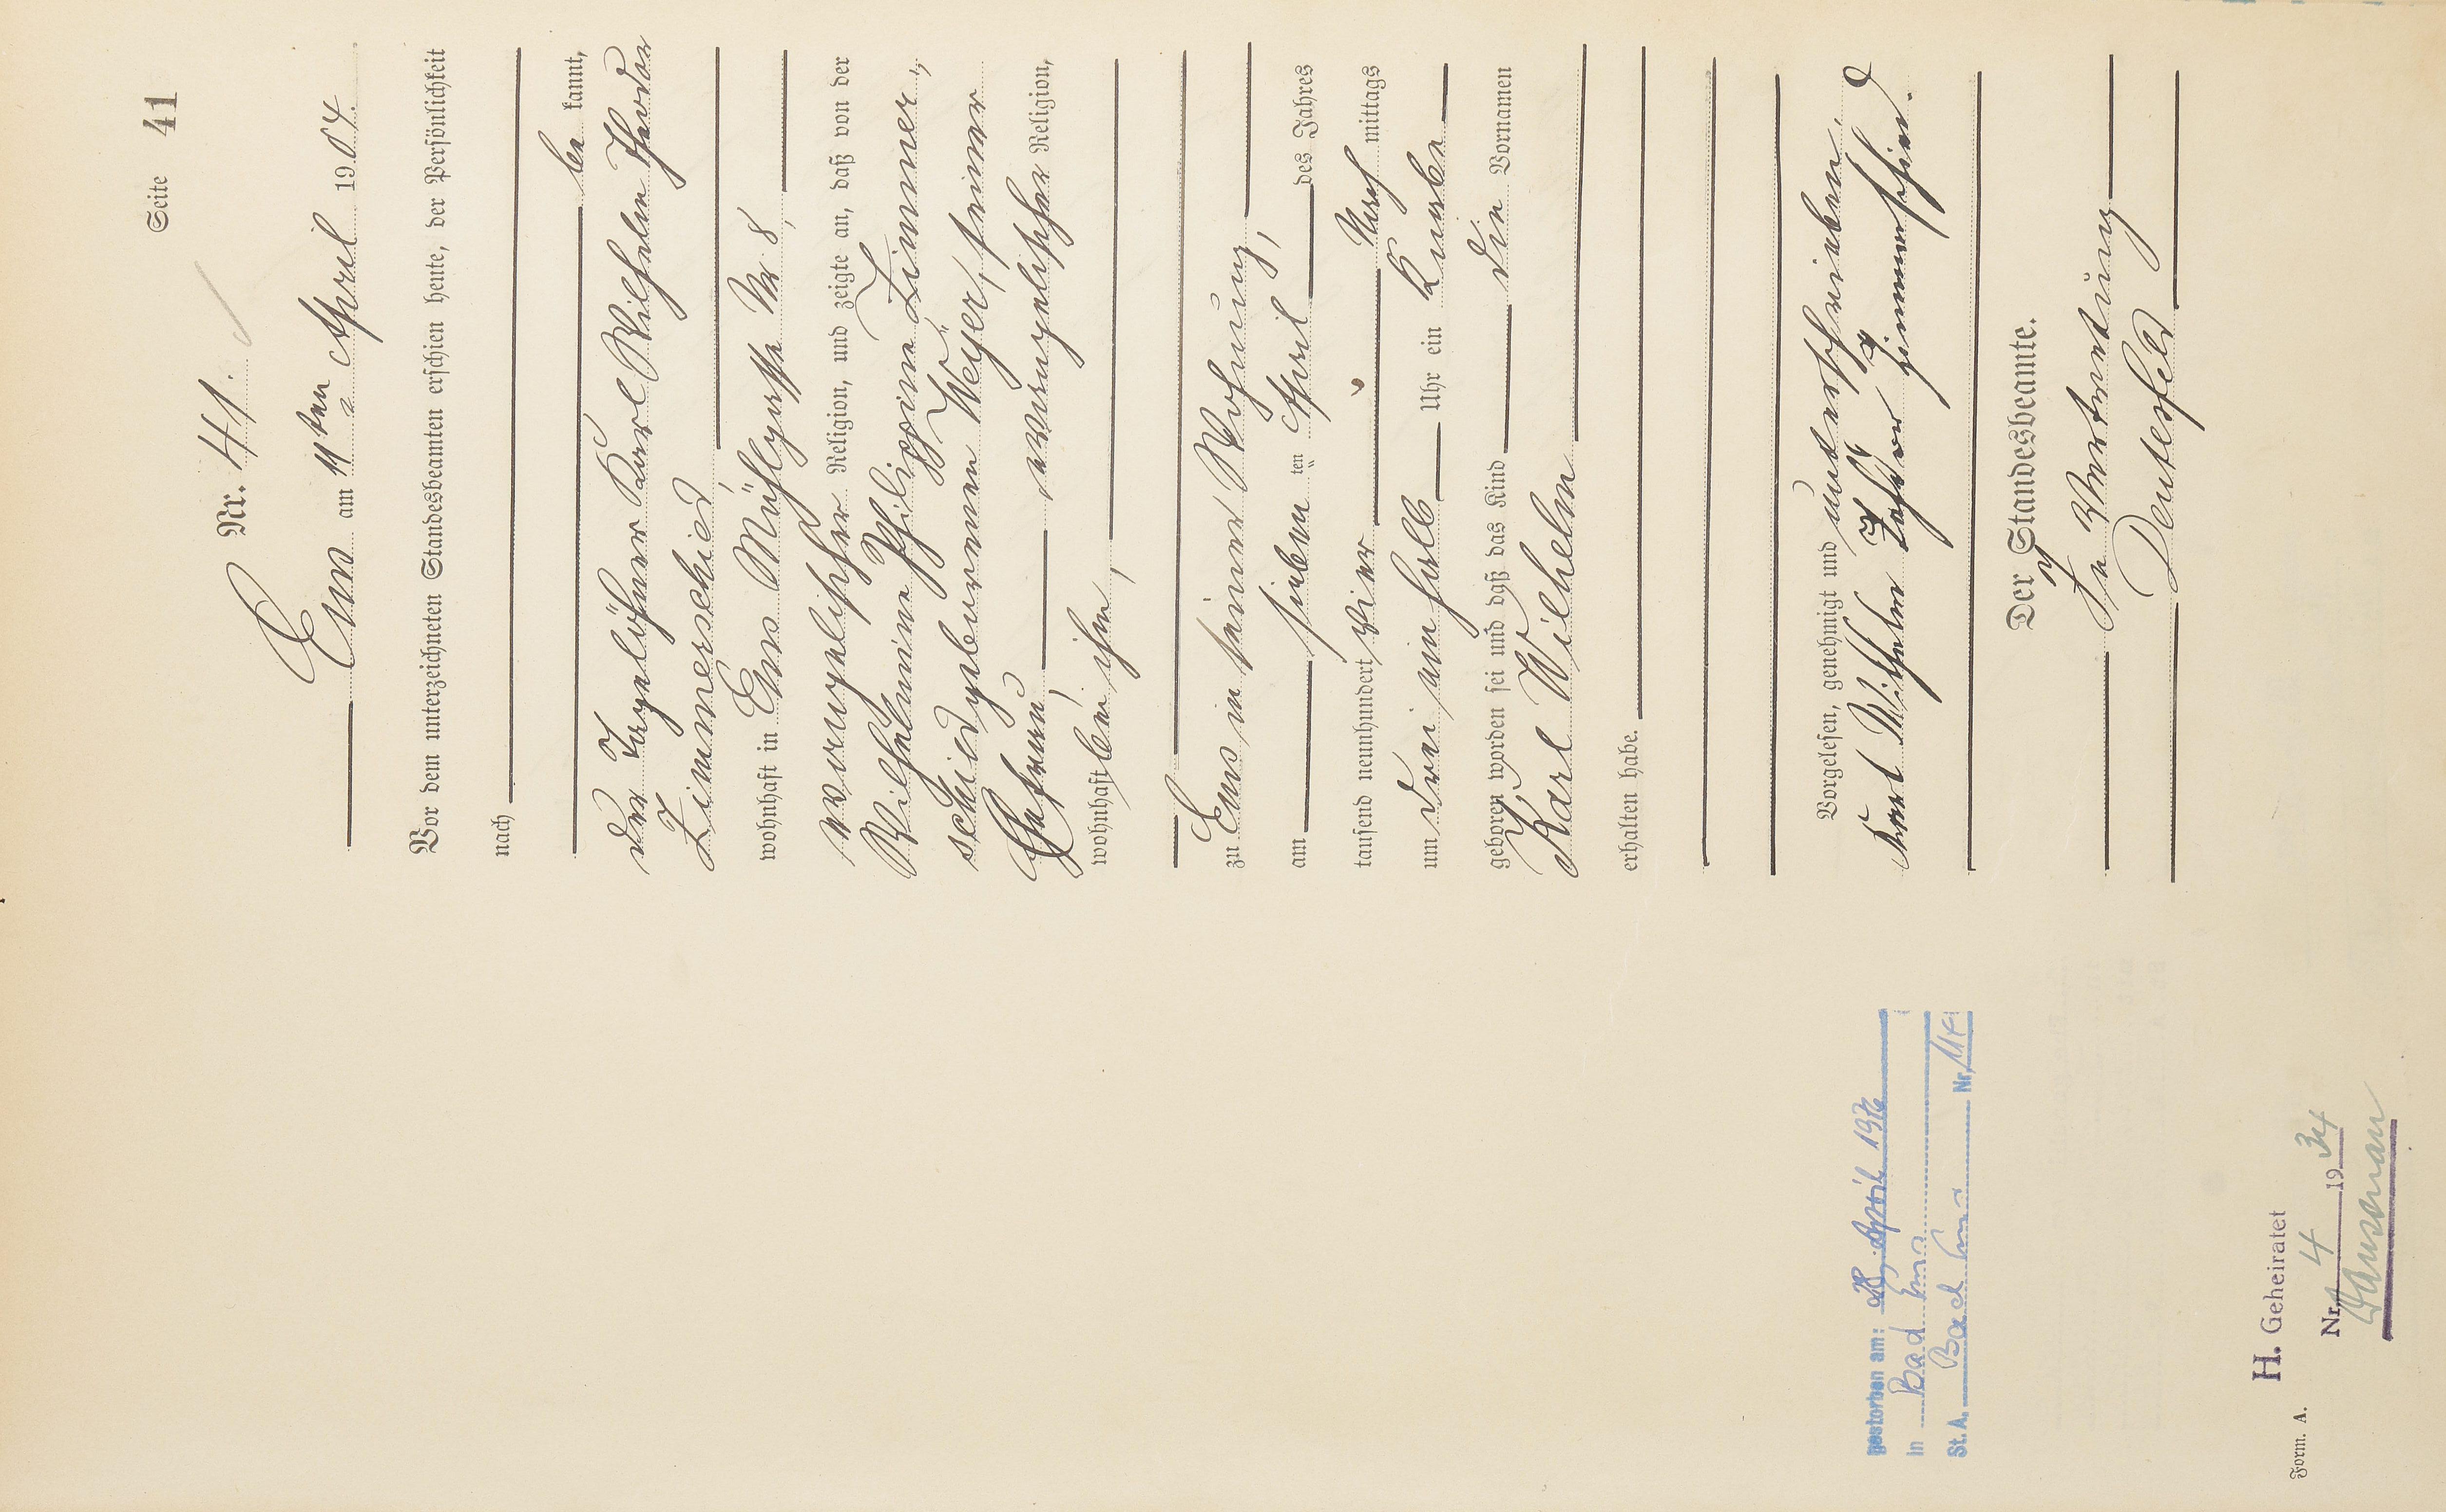 Seite 41
Nr. 41.
Ems am 11ten April 1904.
Vor dem unterzeichneten Standesbeamten erschien heute, der Persönlichkeit
nach
be kannt,
der Tagelöhner Karl Wilhelm Theodor
Zimmerschied,
wohnhaft in Ems Mühlgasse Nr 8,
evangelischer Religion, und zeigte an, daß von der
Wilhelmine Philippine Zimmer„
schied gebornenen Weyer, seiner
Ehefrau, evangelischer Religion,
wohnhaft bei ihm,
zu Ems in seiner Wohnung,
am sieben ten April des Jahres
tausend neunhundert vier Nach mittags
um drei ein halb Uhr ein Knabe
geboren worden sei und daß das Kind die Vornamen
Karl Wilhelm
erhalten habe.
Vorgelesen, genehmigt und unterschrieben.
Karl Wilhelm Zimmerschied.
Der Standesbeamte.
In Vertretung
Deutesfeld
gestorben am: April 1976
in Bad Ems
St.A. Bad Ems Nr.
H. Geheiratet
Form. A.
Nr. 4 1934
Dausenau